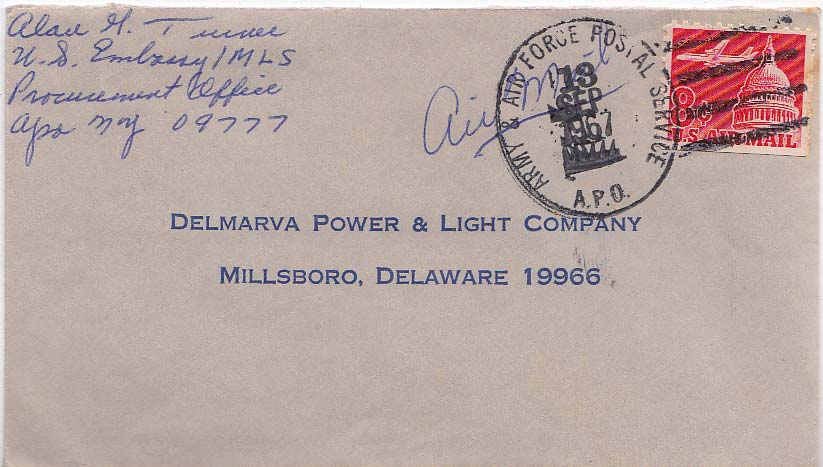 Alan G. Turner
U.S. Embassy/MLS
Procurement Office
Apo NY 09777
Air Mail
ARMY & AIR FORCE POSTAL SERVICE
13
SEP
1967
A.P.O.
8c
U.S. AIR MAIL
DELMARVA POWER & LIGHT COMPANY
MILLSBORO, DELAWARE 19966